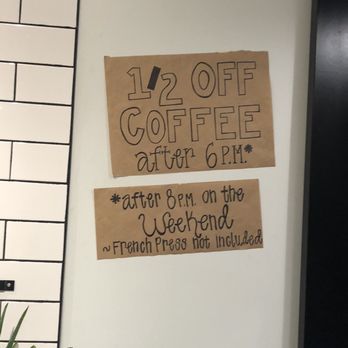 1/2 OFF
COFFEE
after 6 P.M.*
*after 8 P.M. on the
Weekend
~French Press not included